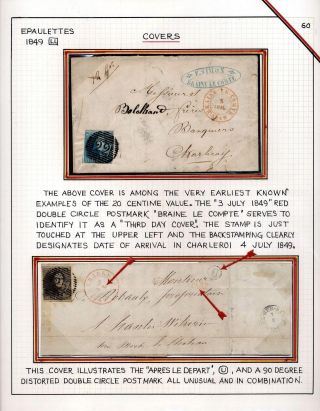 60
EPAULETTES
1849 LL
COVERS
22
Messieurs
frères
Banquiers
Charleroi
THE ABOVE COVER IS AMONG THE VERY EARLIEST KNOWN
EXAMPLES OF THE 20 CENTIME VALUE. THE "3 JULY 1849" RED
DOUBLE CIRCLE POSTMARK "BRAINE LE COMPTE" SERVES TO
IDENTIFY IT AS A "THIRD DAY COVER". THE STAMP IS JUST
TOUCHED AT THE UPPER LEFT AND THE BACKSTAMPING CLEARLY
DESIGNATES DATE OF ARRIVAL IN CHARLEROI 4 JULY 1849.
Monsieur
THIS COVER ILLUSTRATES THE "APRES LE DEPART", U, AND A 90 DEGREE
DISTORTED DOUBLE CIRCLE POSTMARK ALL UNUSUAL AND IN COMBINATION.